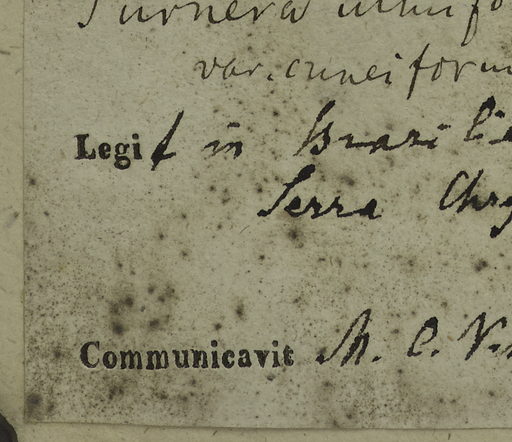 Turnera ulmifo
var. cuneiform
Legit in Brazilie
Serra Chry
Communicavit M. C. V